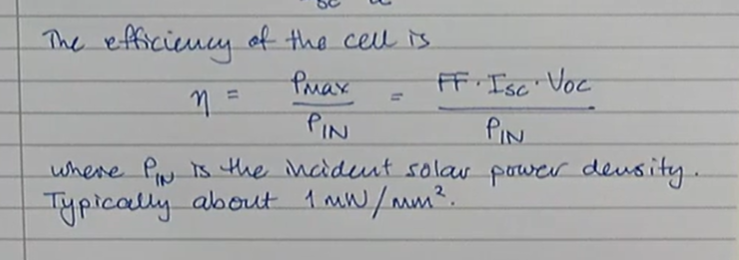 The efficiency of the cell is
η = PMAX / PIN = FF · ISC · VOC / PIN
where PIN is the incident solar power density.
Typically about 1 mW/mm².